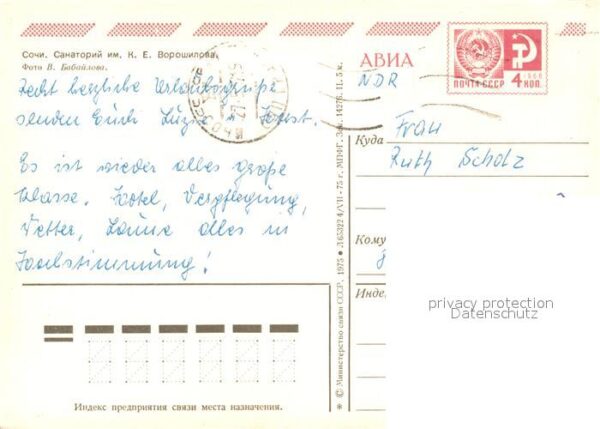 Сочи. Санаторий им. К. Е. Ворошилова.
Фото В. Бабайлова.
Recht herzliche Urlaubsgrüße
senden Euch Luzie + Horst.
Es ist wieder alles große
Klasse. Hotel, Verpflegung,
Wetter, Laune alles in
Hochstimmung!
Индекс предприятия связи места назначения.
© Министерство связи СССР, 1975
МПФГ.
АВИА
NDR
ПОЧТА СССР
4 КОП.
1966
Куда
Frau
Ruth Scholz
Кому
Инде
privacy protection
Datenschutz